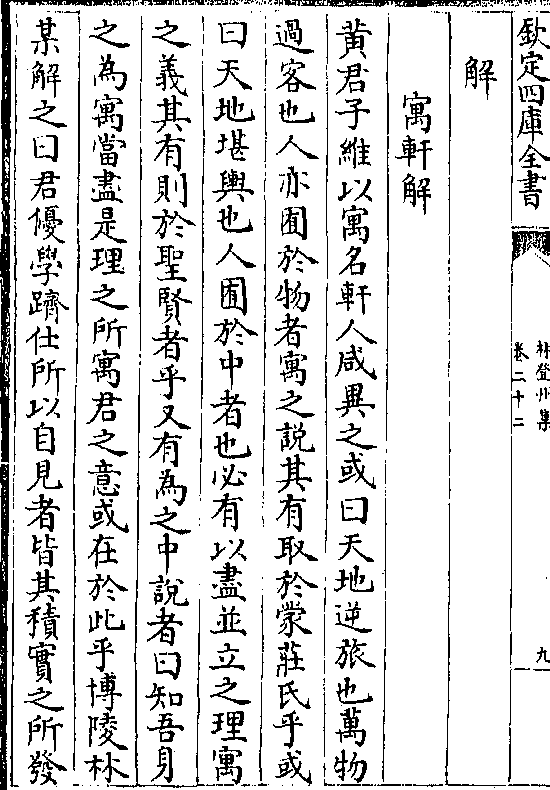 欽定四庫全書
林登州集
卷二十二
九
解
寓軒解
黄君子維以寓名軒人咸異之或曰天地逆旅也萬物
過客也人亦囿於物者寓之説其有取於蒙莊氏乎或
曰天地堪輿也人囿於中者也必有以盡並立之理寓
之義其有則於聖賢者乎又有為之中說者曰知吾身
之為寓當盡是理之所寓君之意或在於此乎博陵林
某解之曰君優學躋仕所以自見者皆其積實之所發